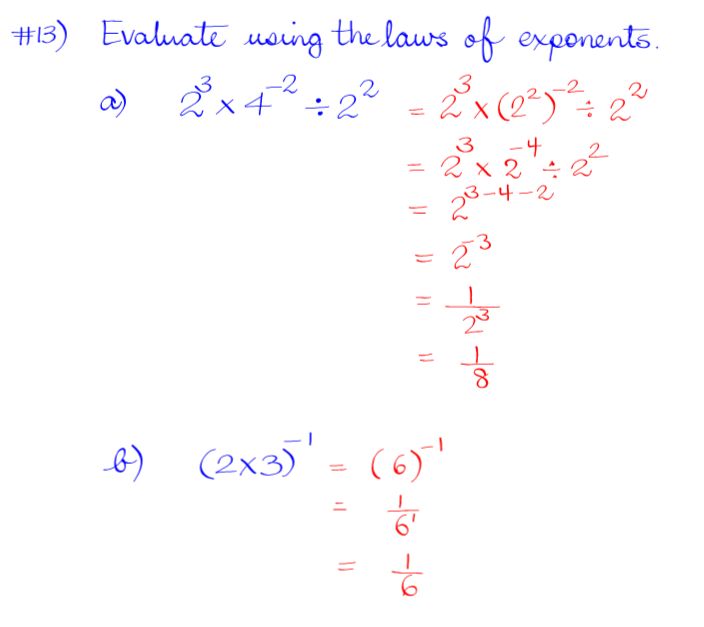 #13) Evaluate using the laws of exponents.
a) 2³ × 4⁻² ÷ 2² = 2³ × (2²)⁻² ÷ 2²
= 2³ × 2⁻⁴ ÷ 2²
= 2³⁻⁴⁻²
= 2⁻³
= 1/2³
= 1/8
b) (2×3)⁻¹ = (6)⁻¹
= 1/6¹
= 1/6